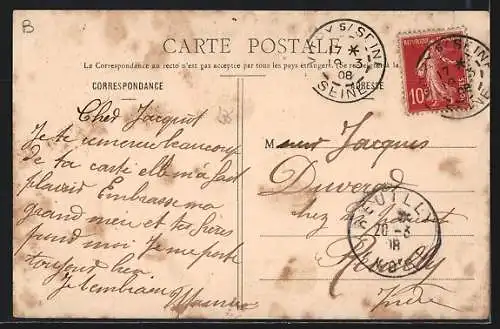 B
CARTE POSTALE
La Correspondance au recto n'est pas acceptée par tous les pays étrangers. (Se renseigner à la
CORRESPONDANCE
ADRESSE
Cher Jacquot
Je te remercie beaucoup
de ta carte elle m'a fait
plaisir Embrasse ma
grand mère et tes frères
pour moi Je me porte
toujours bien
Je t'embrasse Maurice
Monsieur Jacques
Duverad
chez
Reuilly
Indre
S/ SEINE
17 *
-3
08
SEINE
10c
REUILLY
20 -3
08
INDRE